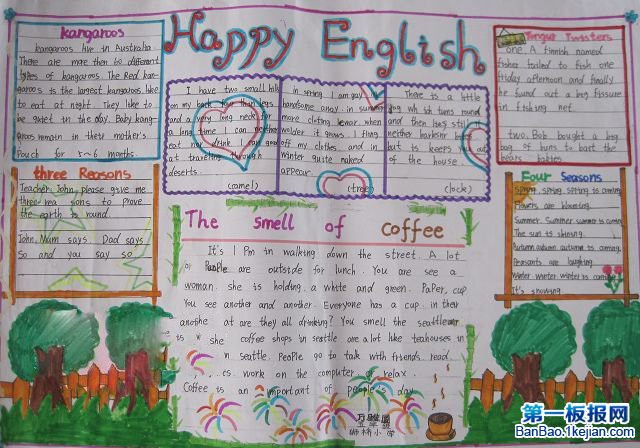 Happy English
kangaroos
kangaroos live in Australia.
There are more then 60 different
types of kangaroos. The Red kan-
garoos is the largest kangaroos. like
to eat at night. They like to
be quiet in the day. Baby kang-
aroos remain in their mother's
Pouch for 5~6 months.
I have two small hills
on my back, four than legs
and a very long neck for
a long time I can neither
eat nor drink. I am good
at traveling through
deserts.
(camel)
In spring I am gay
handsome array. in summer
more cloting I wear when
colder it grows. I fling
off my clothes. and in
winter quite naked
appear.
(tree)
There is a little
dog which turns round
and then has still
neither barks nor bites
but is keeps you out
of the house.
(clock)
Tongue Twisters
one. A finnish named
fisher failed to fish one
friday afternoon and finally
he fund out a big fissure
in fishing net.
two. Bob bought a big
bag of buns to bast the
bears babies.
three Reasons
Teacher: John, please give me
three rea sons to prove
the earth is round.
John: Mum says. Dad says
So and you say so
The smell of coffee
It's 1 Pm in walking down the street. A lot
of People are outside for lunch. You are see a
woman. she is holding. a white and green. Paper, cup
You see another and another. Everyone has a cup. in their
another at are they all drinking? You smell the seattle
is she coffee shops in seattle are a lot like teahouses in
in seattle. People go to talk with friends. read
es. work on the computer or relax.
Coffee is an important of people's day
Four Seasons
Spring, spring, spring is coming.
Flowers are blooming.
Summer. Summer summer is coming
The sun is shining.
Autumn autumn autumn is coming.
Peasants are laughing.
Winter winter winter is coming
It's snowing.
第一板报网
BanBao.1kejian.com